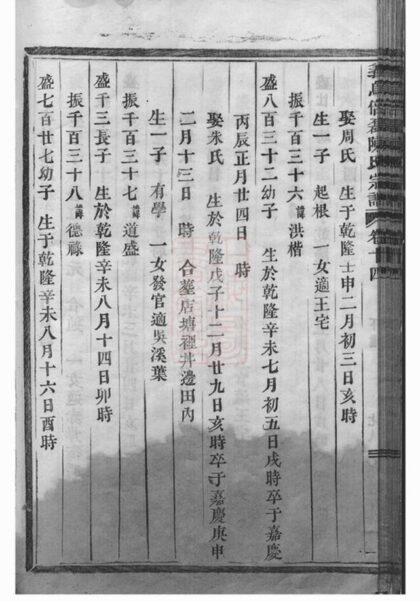 陳氏宗譜 卷十四
娶周氏 生于乾隆壬申二月初三日亥時
生一子 起根 一女適王宅
振千百三十六 諱 洪楷
盛八百三十二幼子 生於乾隆辛未七月初五日戌時卒于嘉慶
丙辰正月廿四日 時
娶朱氏 生於乾隆戊子十二月廿九日亥時卒于嘉慶庚申
二月十三日 時 合墓店塘裡井邊田內
生一子 有學 一女發官適吳溪葉
振千百三十七 諱 道盛
盛千三長子 生於乾隆辛未八月十四日卯時
振千百三十八 諱 德祿
盛七百廿七幼子 生于乾隆辛未八月十六日酉時